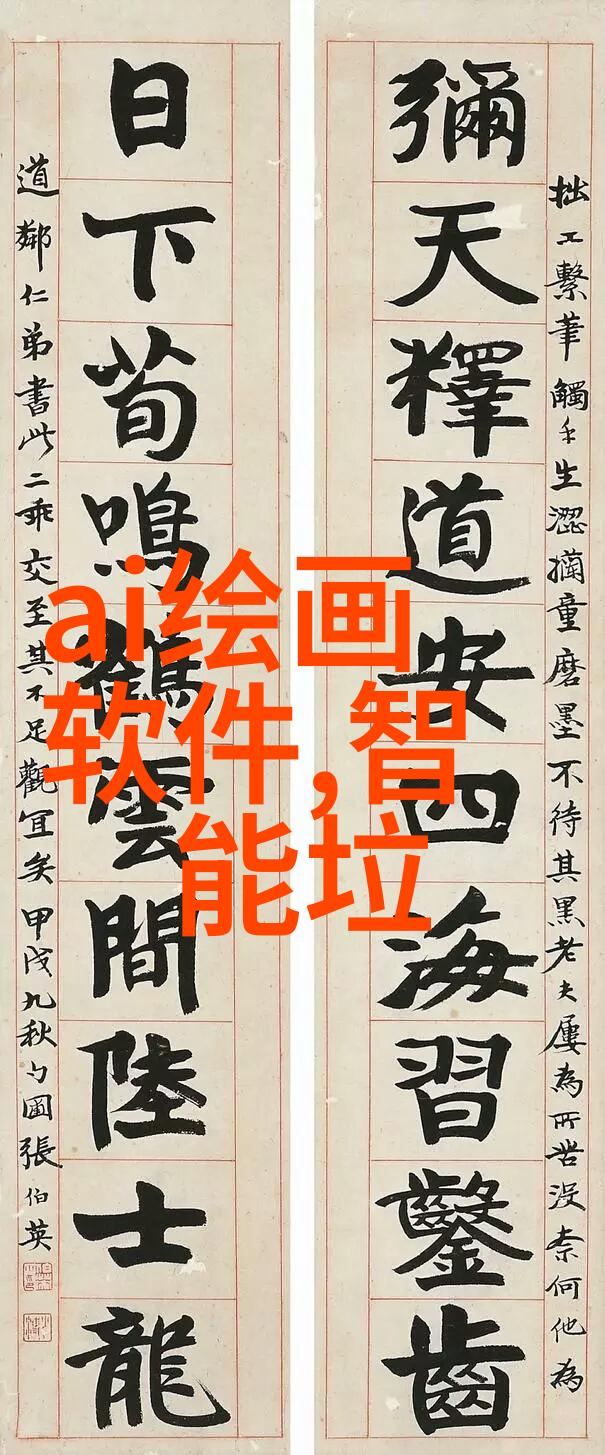 拙工繫筆觸手生澀童磨墨不待其黑老夫屢為所苦沒柰何他為
彌天釋道安四海習鑿齒
日下荀鳴鶴雲間陸士龍
道鄰仁弟書此二乖交至其不足觀宜矣甲戌九秋勺圃張伯英
ai绘画
软件,智
能垃